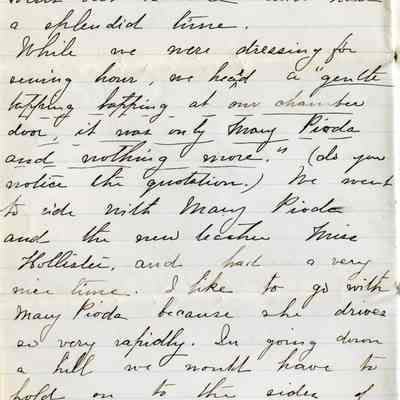 a splendid time.
While we were dressing for
sewing hour, we heard a "gentle
tapping tapping at our chamber
door, it was only Mary Pioda
and nothing more." (do you
notice the quotation.) We went
to ride with Mary Pioda
and the new teacher Miss
Hollister, and had a very
nice time. I like to go with
Mary Pioda because she drives
so very rapidly. In going down
a hill we would have to
hold on to the sides of